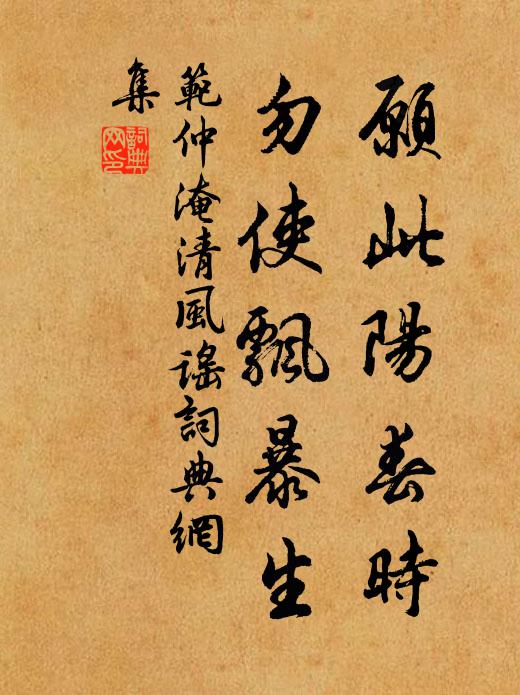 願此陽春時
勿使飄暴生
範仲淹清風謠詞典網
集
詞典
网印